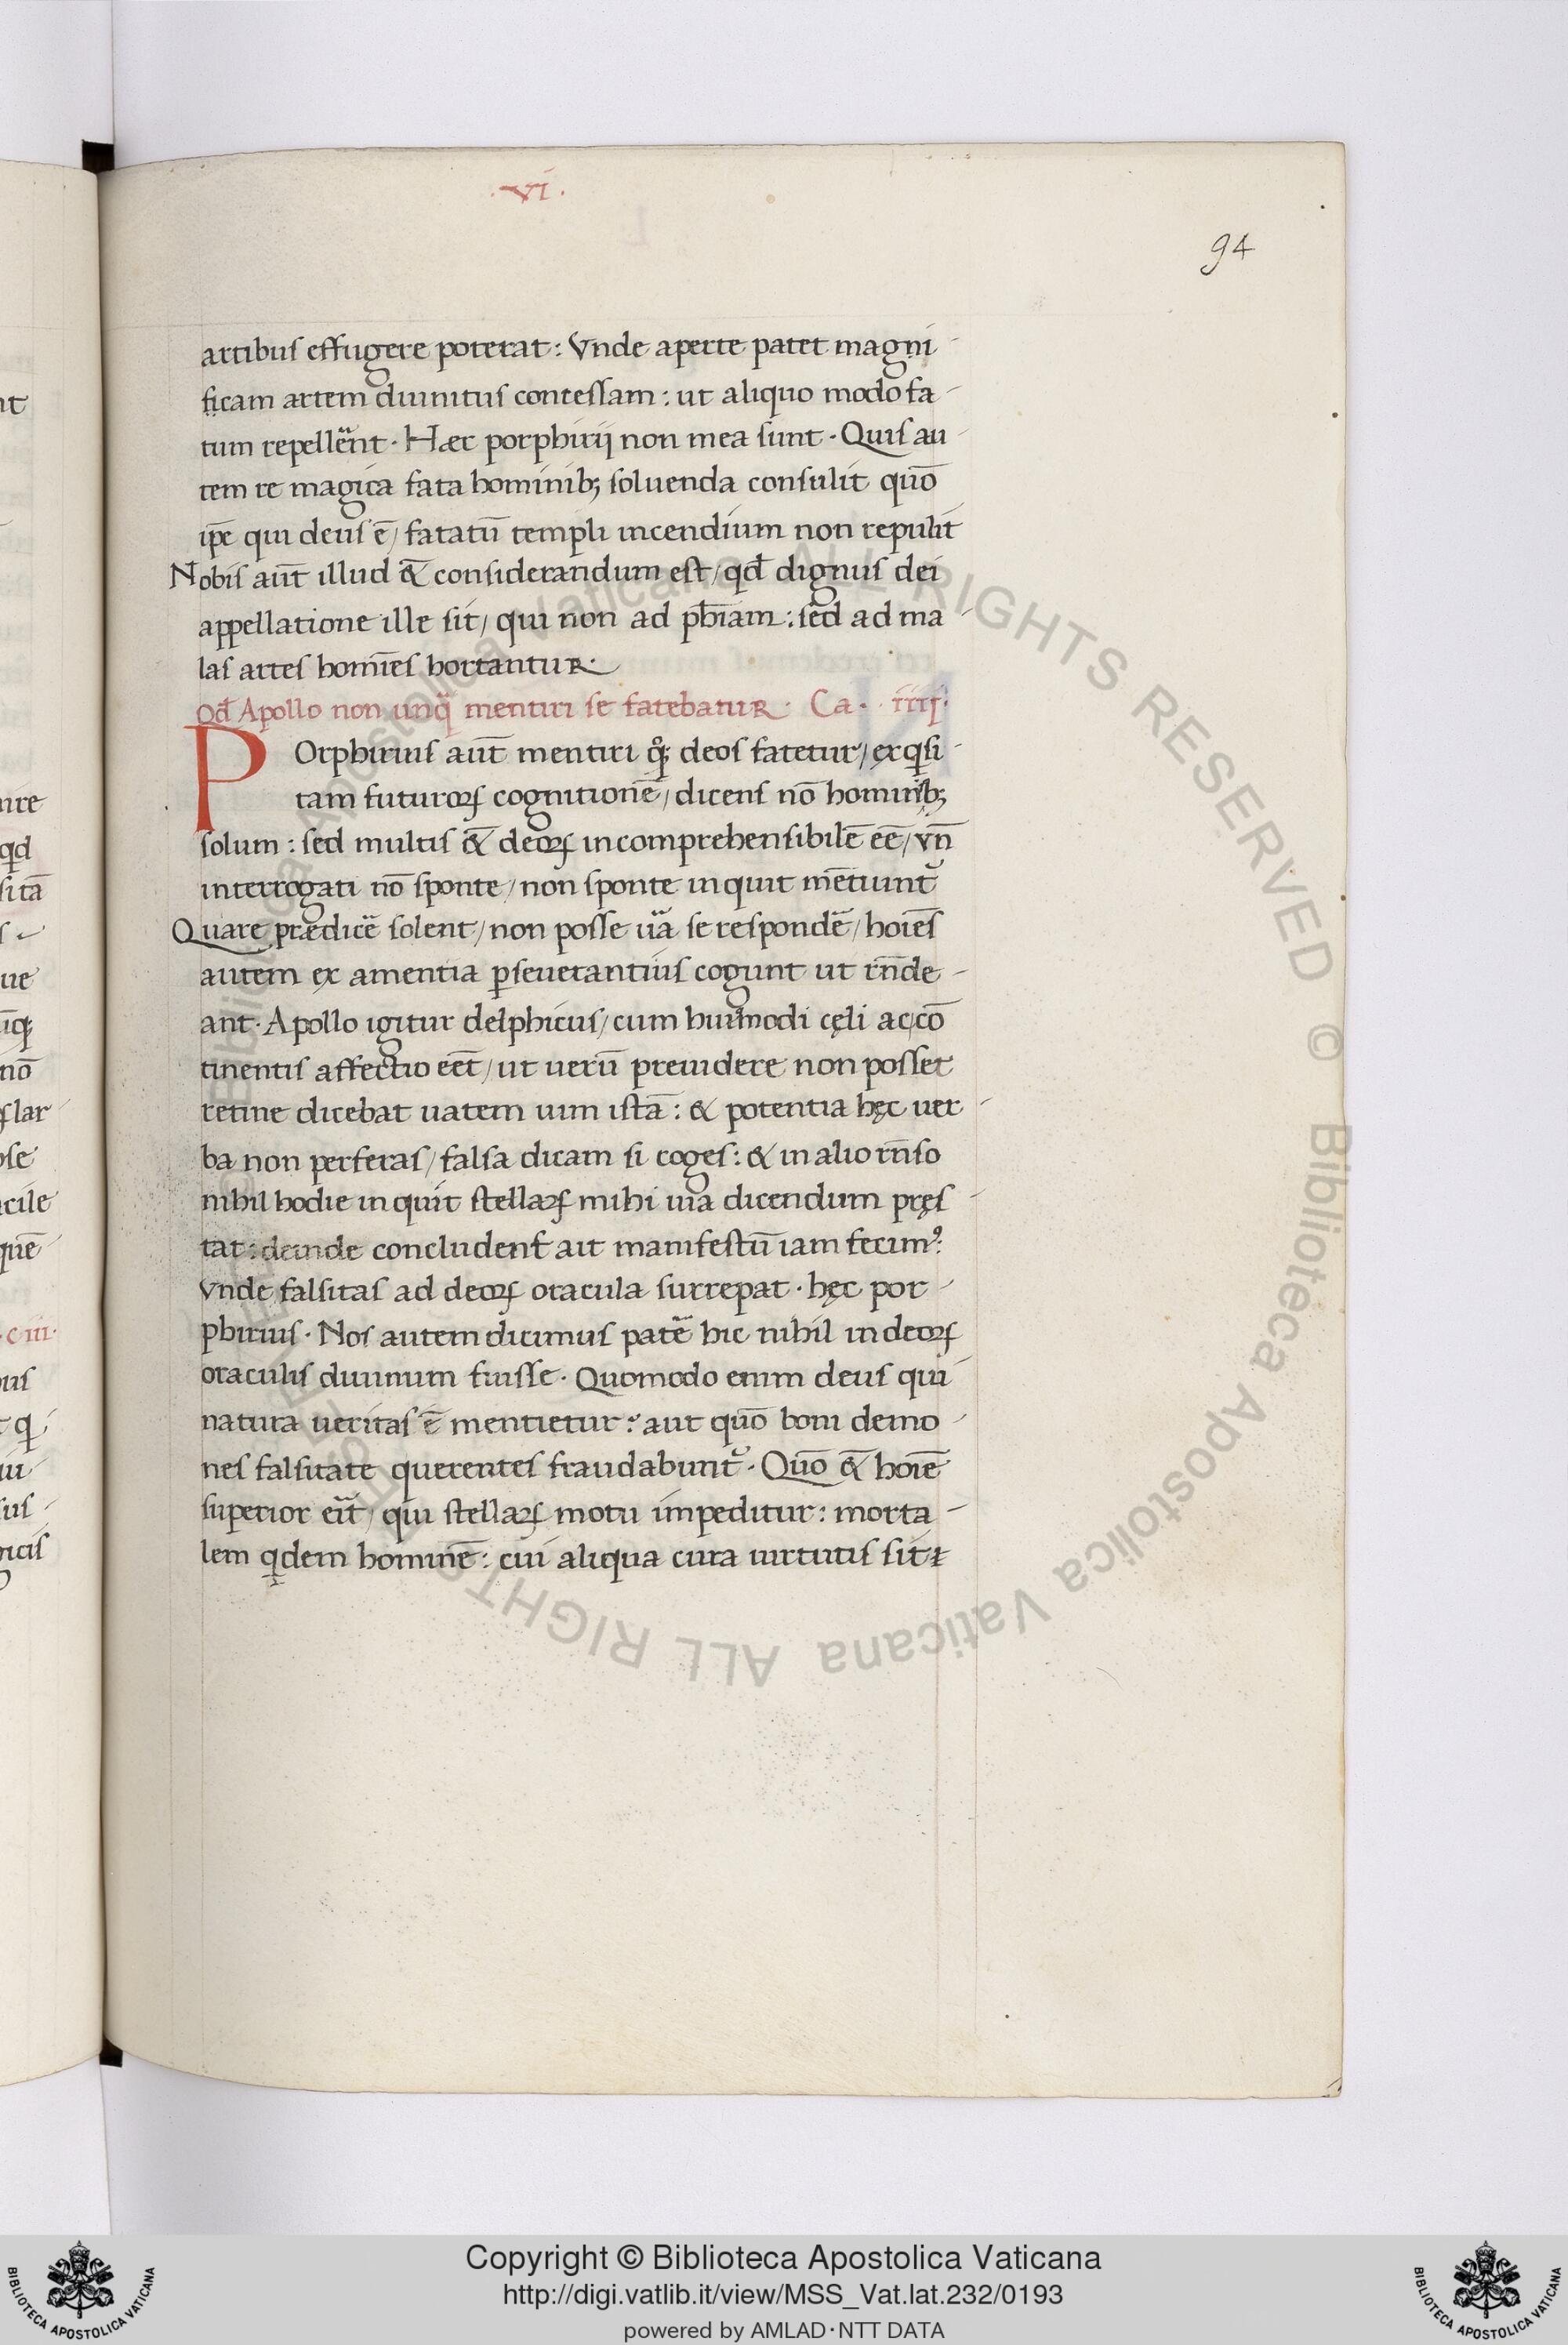 .vi.
94
artibus effugere poterat: Vnde aperte patet magni-
ficam artem diuinitus concessam: ut aliquo modo fa-
tum repellerẽt. Haec porphirij non mea sunt. Quis au-
tem re magica fata hominibꝫ soluenda consulit quõ
ip̃e qui deus ẽ/ fatatũ templi incendium non repulit
Nobis aut̃ illud &̃ considerandum est/ qđ dignus dei
appellatione ille sit/ qui non ad ph̃iam: sed ad ma-
las artes homĩes hortantur.
Qđ Apollo non unq̃ mentiri se fatebatur. Ca. iiij.
POrphirius aut̃ mentiri q̊qꝫ deos fatetur/ exqsi-
tam futuroꝝ cognitionẽ/ dicens nõ hominibꝫ
solum: sed multis &̃ deoꝝ incomprehensibilẽ eẽ/ vñ
interrogati nõ sponte/ non sponte inquit mẽtiunt᷑
Quare praedicẽ solent/ non posse uã se respondẽ/ hoĩes
autem ex amentia ꝑseuerantius cogunt ut rñde-
ant. Apollo igitur delphicus/ cum huiusmodi cęli ac cõ
tinentis affectio eẽt/ ut uerũ preuidere non posset
retine dicebat uatem uim istã: & potentia hęc uer-
ba non perferas/ falsa dicam si coges: & in alio rñso
nihil hodie inquit stellaꝝ mihi uia dicendum pręs-
tat: deinde concludens ait manifestũ iam fecimꝰ:
Vnde falsitas ad deoꝝ oracula surrepat. hęc por-
phirius. Nos autem dicimus patẽ hic nihil in deoꝝ
oraculis diuinum fuisse. Quomodo enim deus qui
natura ueritas ẽ mentietur: aut quõ boni demo-
nes falsitate querentes fraudabunt᷑. Quõ &̃ hoĩe
superior erit/ qui stellaꝝ motu impeditur: morta-
lem qdem hominẽ: cui aliqua cura uirtutis sit
Copyright © Biblioteca Apostolica Vaticana
http://digi.vatlib.it/view/MSS_Vat.lat.232/0193
powered by AMLAD·NTT DATA